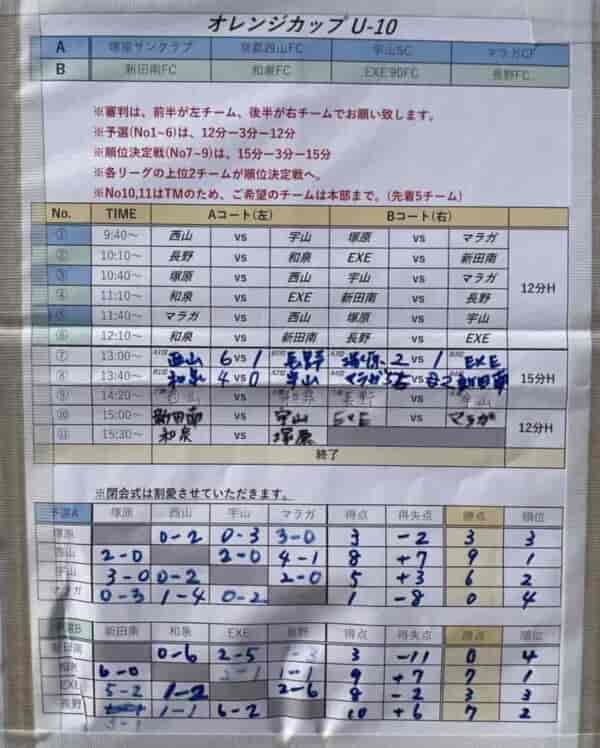 オレンジカップ U-10
A 塚原サンクラブ 京都西山FC 宇山SC マラガCF
B 新田南FC 和泉FC EXE'90FC 長野FC
※審判は、前半が左チーム、後半が右チームでお願い致します。
※予選(No1~6)は、12分ー3分ー12分
※順位決定戦(No7~9)は、15分ー3分ー15分
※各リーグの上位2チームが順位決定戦へ。
※No10,11はTMのため、ご希望のチームは本部まで。(先着5チーム)
No. TIME Aコート(左) Bコート(右)
① 9:40～ 西山 vs 宇山 塚原 vs マラガ
② 10:10～ 長野 vs 和泉 EXE vs 新田南
③ 10:40～ 塚原 vs 西山 宇山 vs マラガ
12分H
④ 11:10～ 和泉 vs EXE 新田南 vs 長野
⑤ 11:40～ マラガ vs 西山 塚原 vs 宇山
⑥ 12:10～ 和泉 vs 新田南 長野 vs EXE
⑦ 13:00～ 西山 6 vs 1 長野 塚原 2 1 EXE
15分H
⑧ 13:40～ 和泉 4 vs 0 宇山 マラガ 新田南
⑨ 14:20～ vs vs
⑩ 15:00～ 新田南 vs 宇山 EXE vs マラガ
12分H
⑪ 15:30～ 和泉 vs 塚原
終了
※閉会式は割愛させていただきます。
予選A 塚原 西山 宇山 マラガ 得点 得失点 勝点 順位
塚原 0-2 0-3 3-0 3 -2 3 3
西山 2-0 2-0 4-1 8 +7 9 1
宇山 3-0 0-2 2-0 5 +3 6 2
マラガ 0-3 1-4 0-2 1 -8 0 4
予選B 新田南 和泉 EXE 長野 得点 得失点 勝点 順位
新田南 0-6 2-5 1-3 3 -11 0 4
和泉 6-0 2-1 1-1 9 +7 7 1
EXE 5-2 1-2 2-6 8 -2 3 3
長野 1-1 6-2 10 +6 7 2
3-1